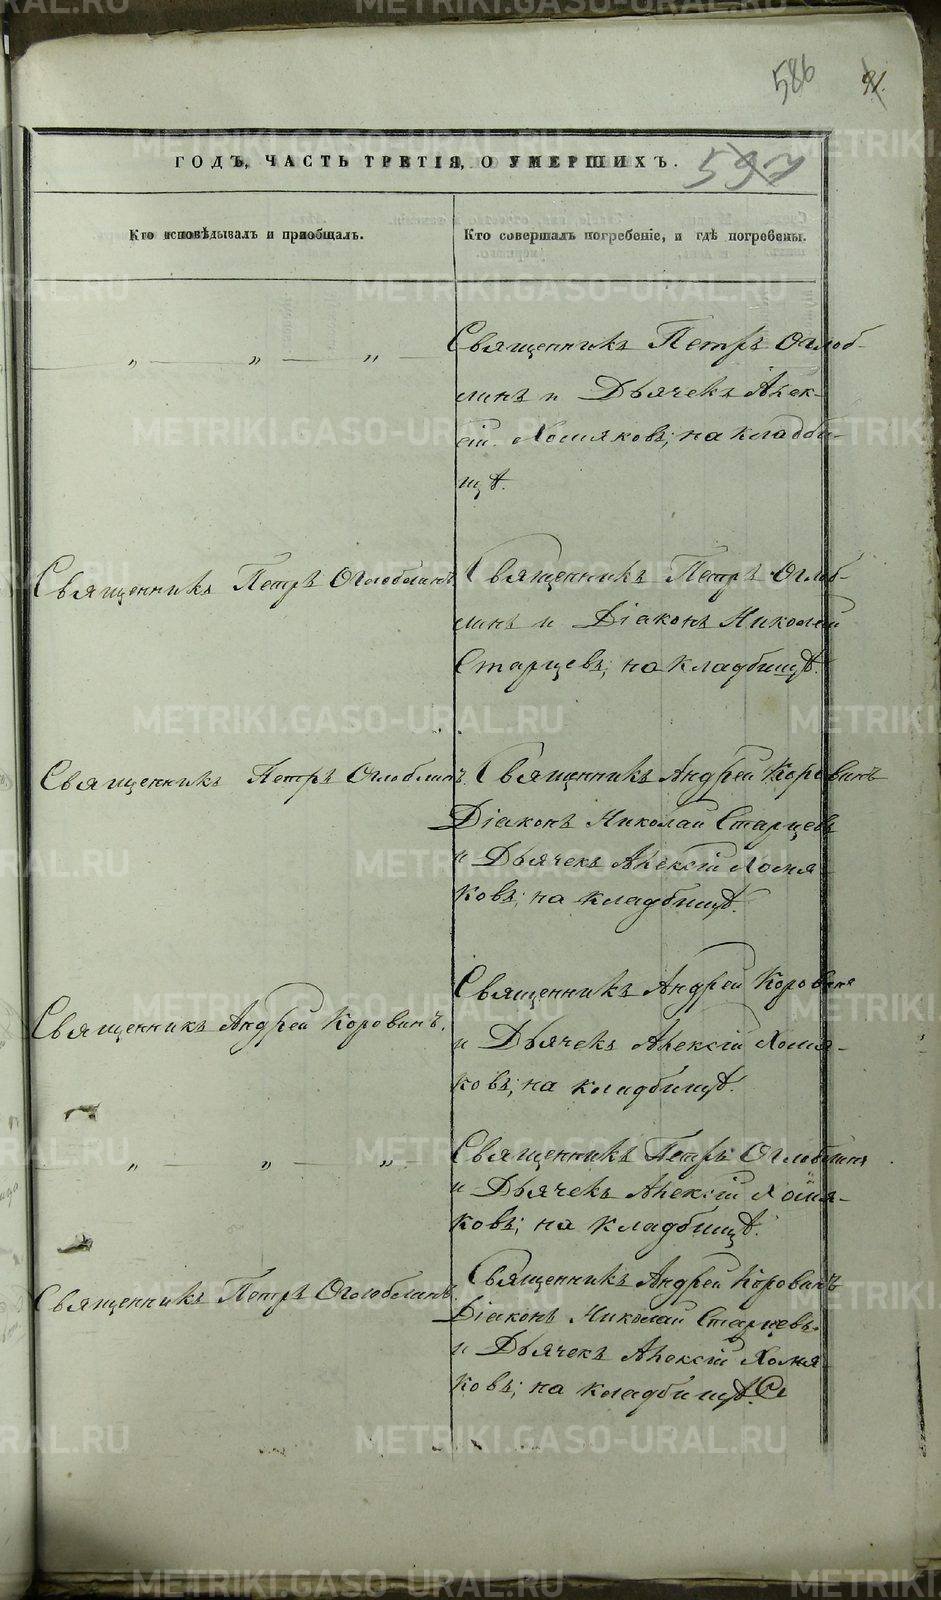 586
91.
597
ГОДЪ, ЧАСТЬ ТРЕТІЯ, О УМЕРШИХЪ.
Кто исповѣдывалъ и пріобщалъ.
Кто совершалъ погребеніе, и гдѣ погребены.
„ „ „
Священникъ Петръ Оглоб-
линъ и Дьячекъ Алек-
сій Хомяковъ; на кладби-
щѣ.
Священникъ Петръ Оглоблинъ
Священникъ Петръ Оглоб-
линъ и Діаконъ Николай
Старцевъ; на кладбищѣ.
Священникъ Петръ Оглоблинъ
Священникъ Андрей Коровинъ
Діаконъ Николай Старцевъ
и Дьячекъ Алексій Хомя-
ковъ; на кладбищѣ.
Священникъ Андрей Коровинъ.
Священникъ Андрей Коровинъ
и Дьячекъ Алексій Хомя-
ковъ; на кладбищѣ.
„ „ „
Священникъ Петръ Оглоблинъ
и Дьячекъ Алексій Хомя-
ковъ; на кладбищѣ.
Священникъ Петръ Оглоблинъ.
Священникъ Андрей Коровинъ
Діаконъ Николай Старцевъ
и Дьячекъ Алексій Хомя-
ковъ; на кладбищѣ.
METRIKI.GASO-URAL.RU